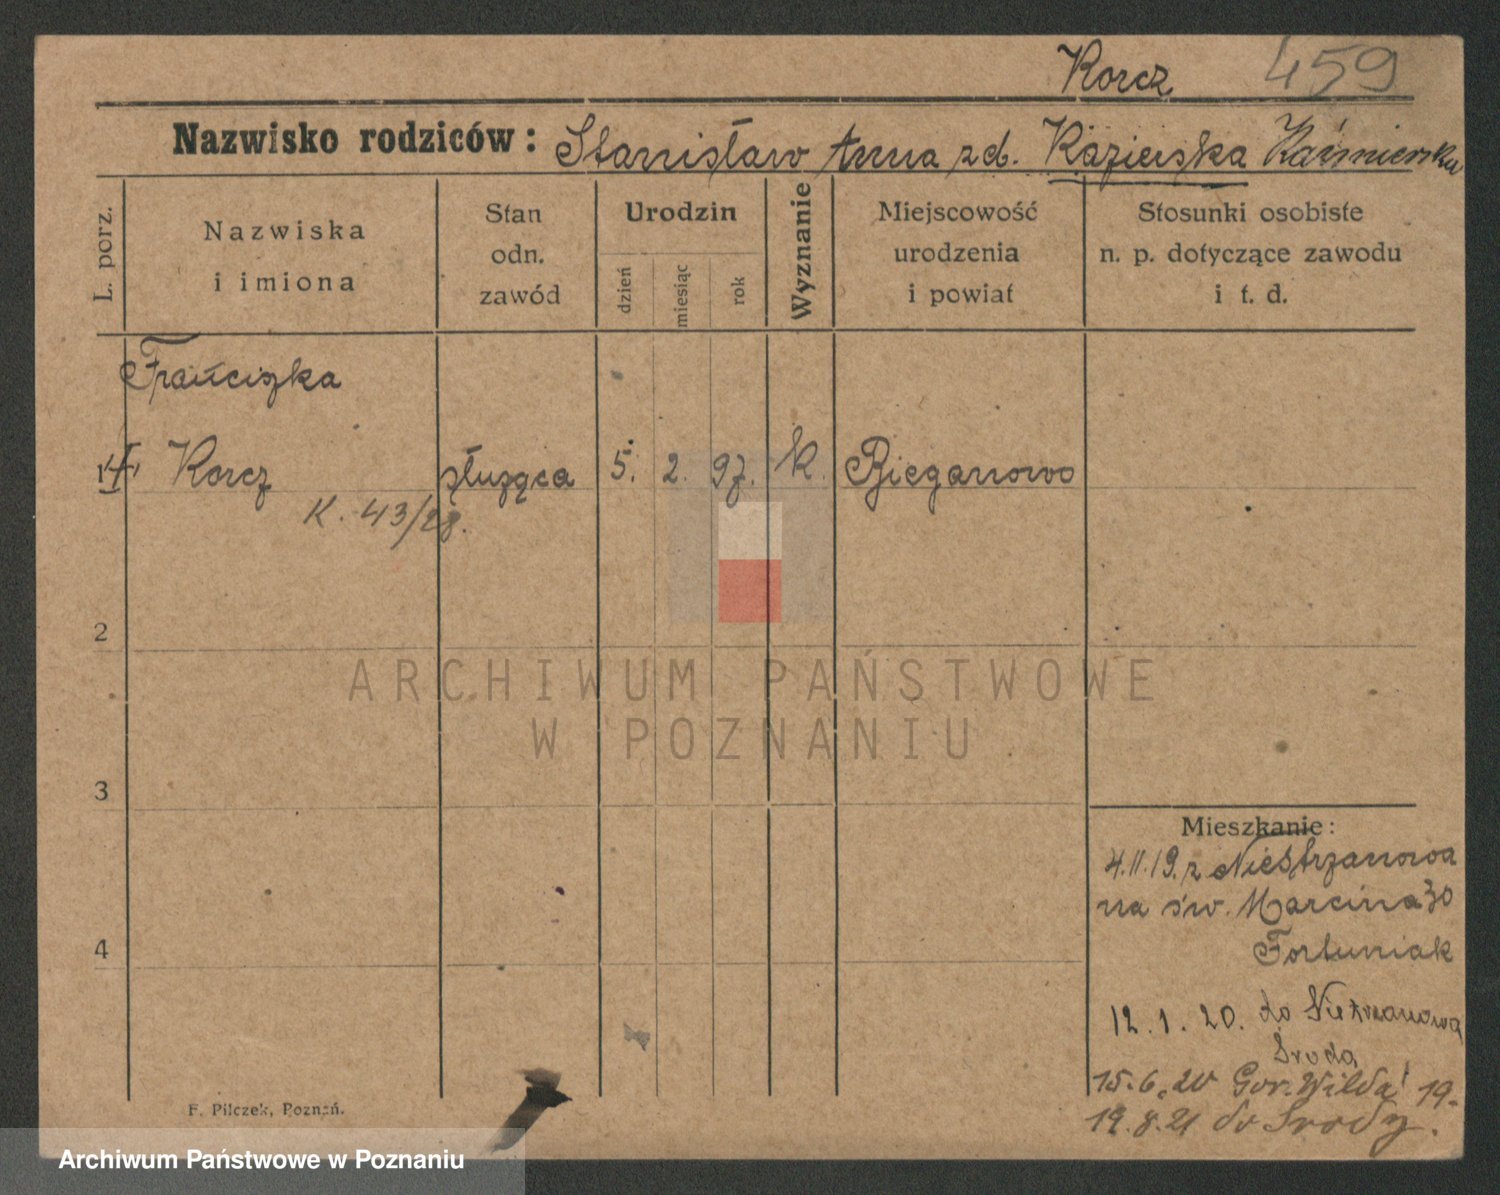 Korcz 459
Nazwisko rodziców: Stanisław Anna zd. Kazierska Kaźmierska
L. porz.
Nazwiska
i imiona
Stan
odn.
zawód
Urodzin
dzień
miesiąc
rok
Wyznanie
Miejscowość
urodzenia
i powiat
Stosunki osobiste
n. p. dotyczące zawodu
i t. d.
Franciszka
1 Korcz służąca 5. 2. 97. k. Bieganowo
K. 43/28.
2
ARCHIWUM PAŃSTWOWE
W POZNANIU
3
Mieszkanie:
4.11.19. z Niestrzanowa
na św. Marcina 30
4
Fortuniak
12.1.20. do Nietrzanowa
Środa
15.6.20 Gór. Wilda 19.
19.8.21 do Środy.
F. Pilczek, Poznań.
Archiwum Państwowe w Poznaniu